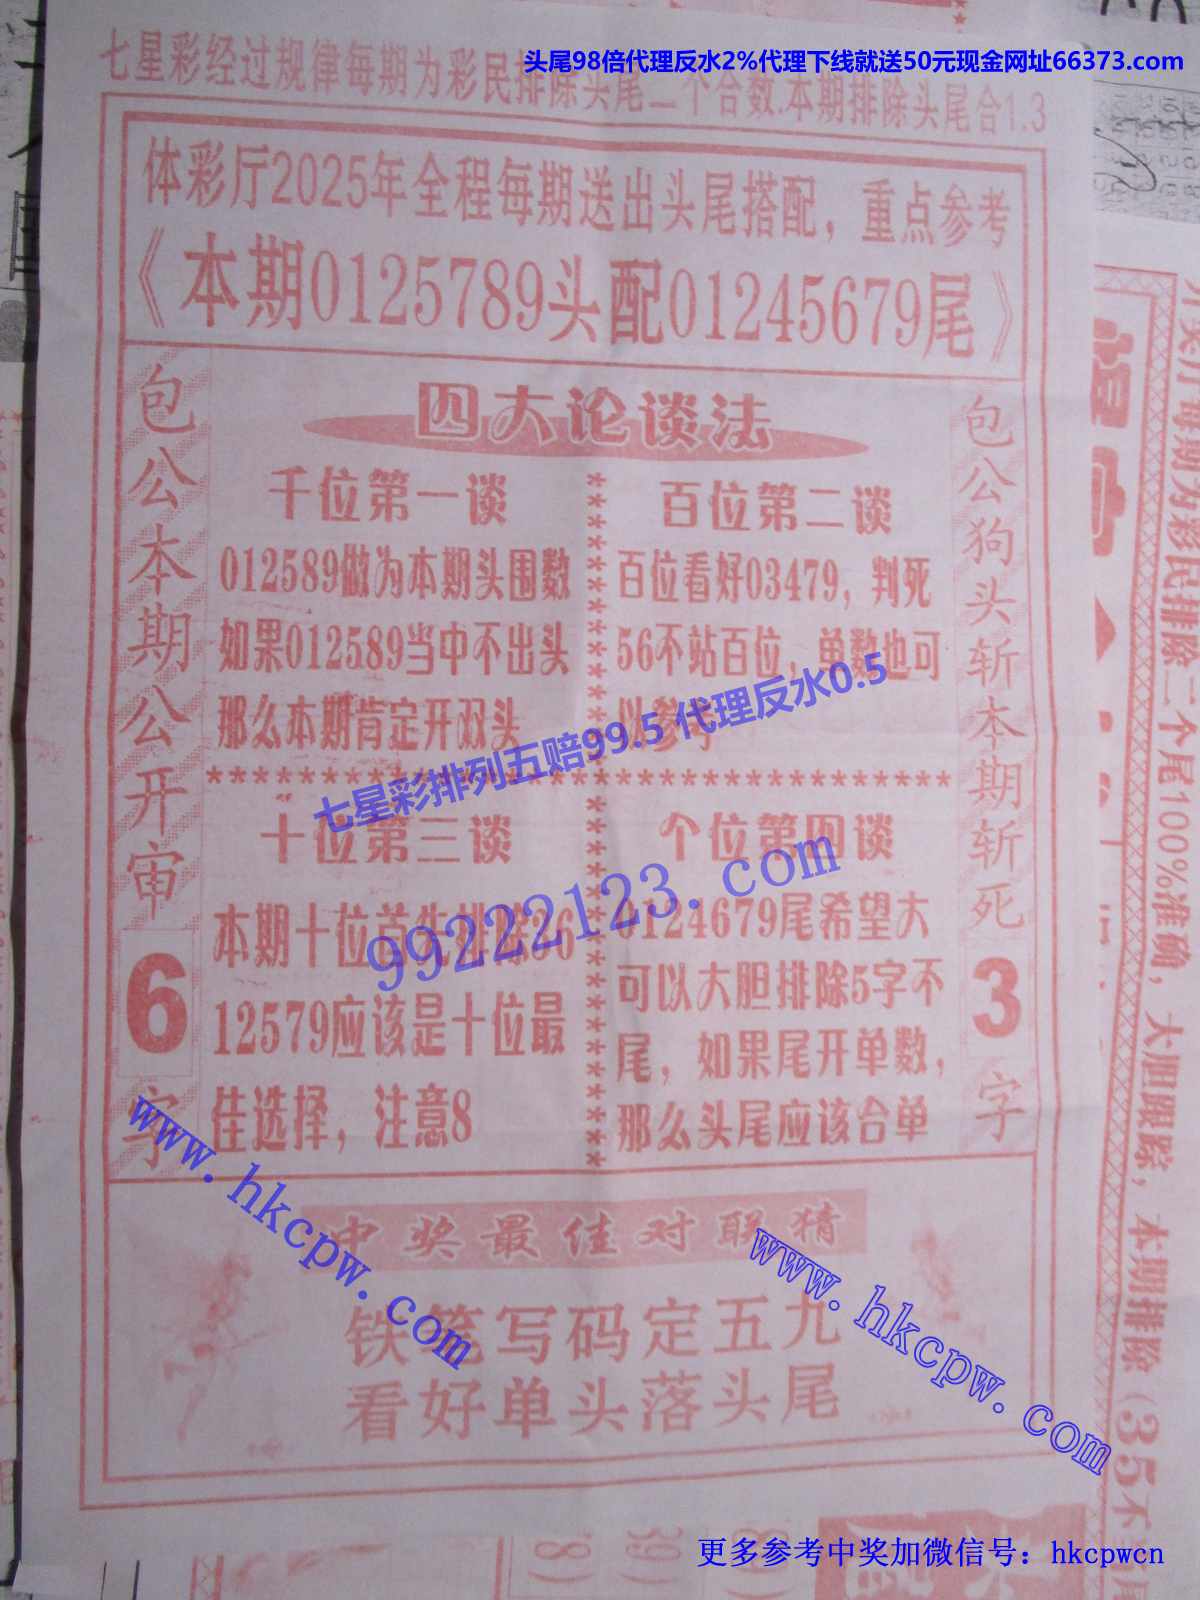 头尾98倍代理反水2%代理下线就送50元现金网址66373.com
七星彩经过规律每期为彩民排除头尾二个合数.本期排除头尾合1.3
体彩厅2025年全程每期送出头尾搭配，重点参考
《本期0125789头配01245679尾》
四大论谈法
包公本期公开审6字
千位第一谈
012589做为本期头围数
如果012589当中不出头
那么本期肯定开双头
百位第二谈
百位看好03479，判死
56不站百位，单数也可
以参考
包公狗头斩本期斩死3字
七星彩排列五赔99.5 代理反水0.5
99222123.com
十位第三谈
本期十位首先排除36
12579应该是十位最
佳选择，注意8
个位第四谈
0124679尾希望大
可以大胆排除5字不
尾，如果尾开单数，
那么头尾应该合单
www.hkcpw.com
www.hkcpw.com
中奖最佳对联猜
铁笔写码定五九
看好单头落头尾
每期为彩民排除二个尾100%准确，大胆跟踪，本期排除(35不
更多参考中奖加微信号：hkcpwcn